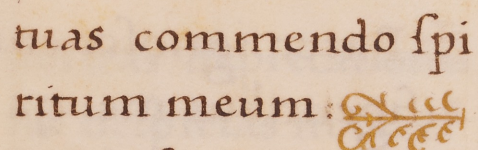 tuas commendo ſpi
ritum meum :